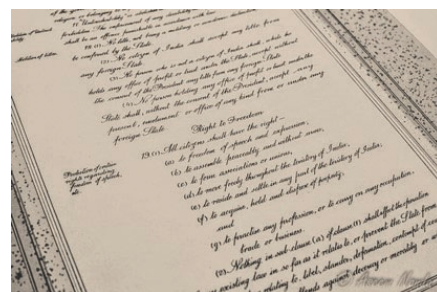 citizen of India shall accept any title from
any foreign State.
(3) No person who is not a citizen of India shall, while he
holds any office of profit or trust under the State, accept without
the consent of the President any title from any foreign State.
(4) No person holding any office of profit or trust under the
State shall, without the consent of the President, accept any
present, emolument or office of any kind from or under any
foreign State.
Right to Freedom
Protection of certain
rights regarding
freedom of speech,
etc.
19. (1) All citizens shall have the right —
(a) to freedom of speech and expression;
(b) to assemble peaceably and without arms;
(c) to form associations or unions;
(d) to move freely throughout the territory of India;
(e) to reside and settle in any part of the territory of India;
(f) to acquire, hold and dispose of property;
and
(g) to practise any profession, or to carry on any occupation,
trade or business.
(2) Nothing in sub-clause (a) of clause (1) shall affect the operation
existing law in so far as it relates to, or prevent the State from
relating to, libel, slander, defamation, contempt of
against decency or morality or